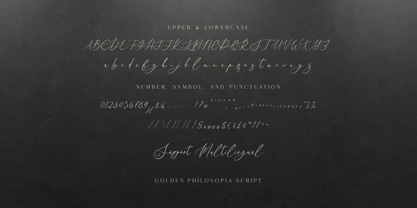 UPPER & LOWERCASE
ABCDEFGHIJKLMNOPQRSTUVWXYZ
abcdefghijklmnopqrstuvwxyz
NUMBER, SYMBOL, AND PUNCTUATION
0123456789
Support Multilingual
GOLDEN PHILOSOPIA SCRIPT